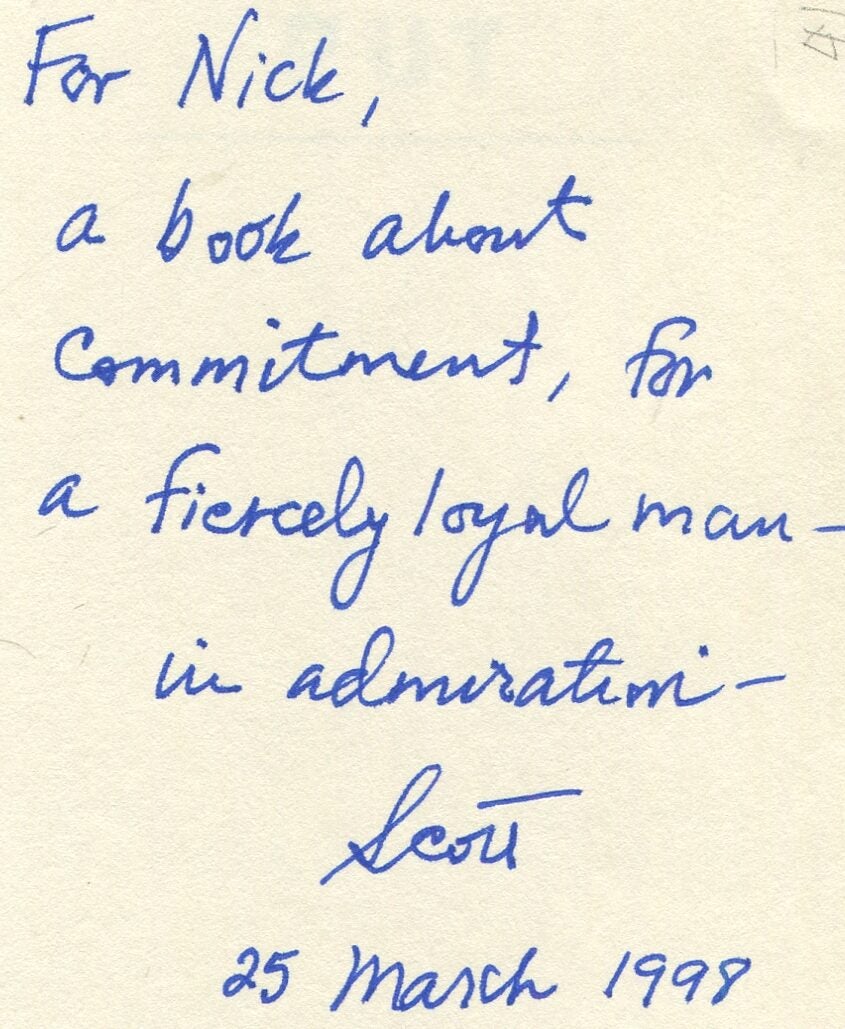 For Nick,
a book about
Commitment, for
a fiercely loyal man –
in admiration –
Scott
25 March 1998